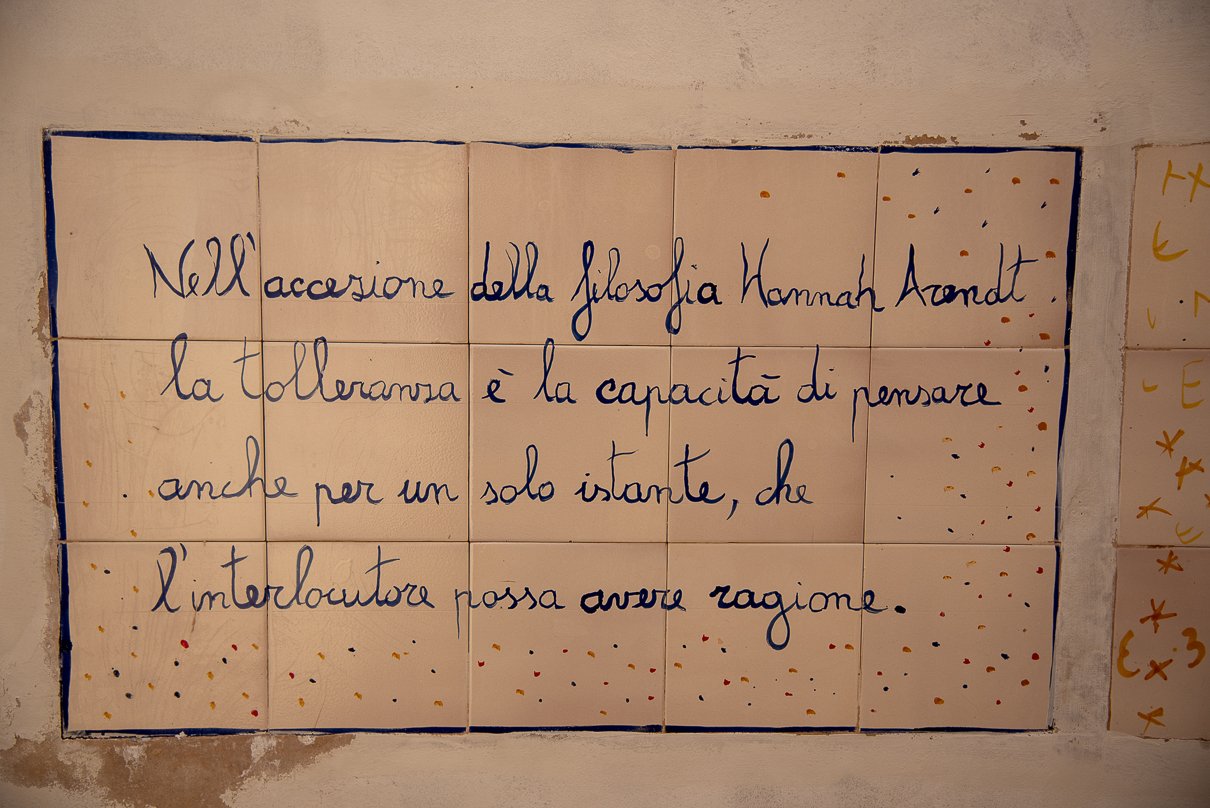 Nell'accezione della filosofia Hannah Arendt.
la tolleranza è la capacità di pensare
anche per un solo istante, che
l'interlocutore possa avere ragione.